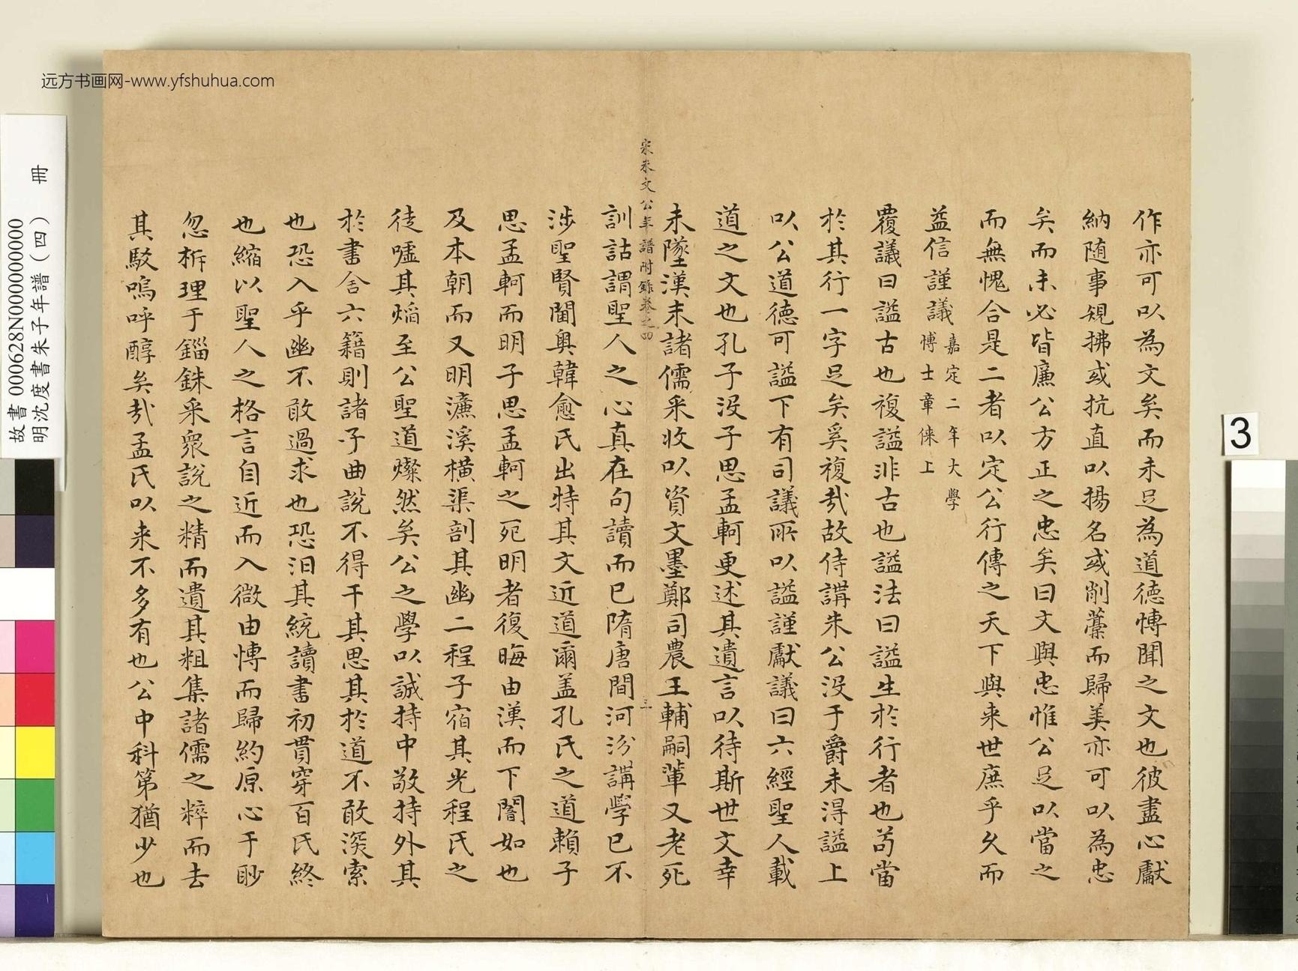 远方书画网-www.yfshuhua.com
故書 000628N000000000
明沈度書朱子年譜(四) 冊
3
作亦可以為文矣而未足為道德博聞之文也彼盡心獻
納随事規拂或抗直以揚名或削藁而歸美亦可以為忠
矣而未必皆廉公方正之忠矣曰文與忠惟公足以當之
而無愧合是二者以定公行傳之天下與来世庶乎久而
益信謹議
嘉定二年大學
博士章徠上
覆議曰謚古也複謚非古也謚法曰謚生於行者也苟當
於其行一字足矣奚複㢤故侍講朱公没于爵未得謚上
以公道德可謚下有司議所以謚謹獻議曰六經聖人載
道之文也孔子没子思孟軻更述其遺言以待斯世文幸
未墜漢末諸儒采收以資文墨鄭司農王輔嗣輩又老死
宋朱文公年譜附録卷之四
三
訓詁謂聖人之心真在句讀而已隋唐間河汾講學已不
涉聖賢閫奥韓愈氏出特其文近道爾盖孔氏之道賴子
思孟軻而明子思孟軻之死明者復晦由漢而下闇如也
及本朝而又明濂溪横渠剖其幽二程子宿其光程氏之
徒嘘其焰至公聖道燦然矣公之學以誠持中敬持外其
於書舍六籍則諸子曲說不得干其思其於道不敢深索
也恐入乎幽不敢過求也恐汨其統讀書初貫穿百氏終
也縮以聖人之格言自近而入微由博而歸約原心于眇
忽析理于錙銖采衆說之精而遺其粗集諸儒之粹而去
其駁嗚呼醇矣㢤孟氏以来不多有也公中科第猶少也